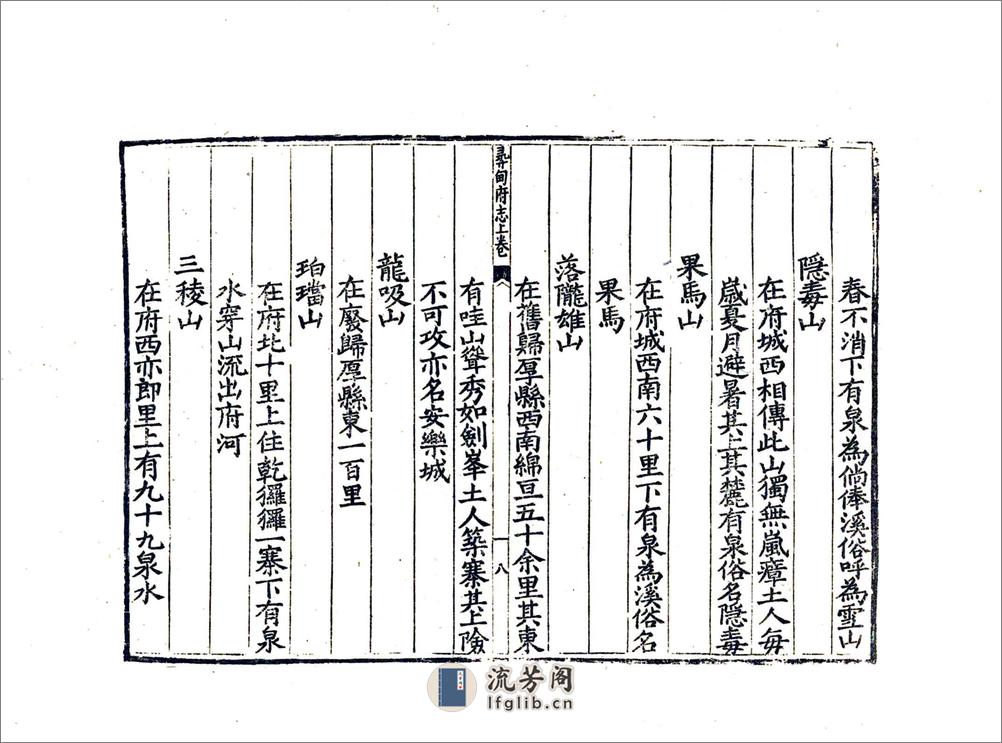 春不消下有泉為倘俸溪俗呼為雪山
隱毒山
在府城西相傳此山獨無嵐瘴土人每
歲夏月避暑其上其麓有泉俗名隱毒
果馬山
在府城西南六十里下有泉為溪俗名
果馬
落隴雄山
在舊歸厚縣西南綿亘五十余里其東
尋甸府志上卷
八
有哇山聳秀如劍峯土人築寨其上險
不可攻亦名安樂城
龍吸山
在廢歸厚縣東一百里
珀璫山
在府北十里上住乾玀玀一寨下有泉
水穿山流出府河
三稜山
在府西亦郎里上有九十九泉水
流芳阁
lfglib.cn